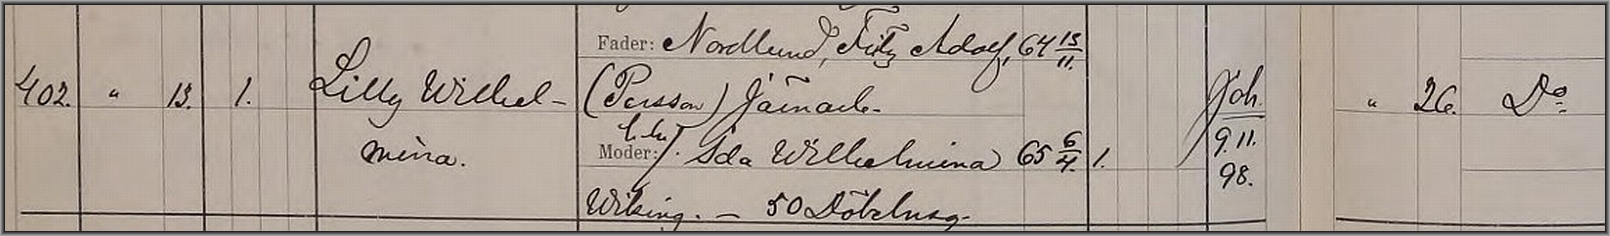 Fader: Nordlund, Fritz Adolf, 64 13/11.
402. " 13. 1. Lilly Wilhel- (Persson) Järnarb. Joh. " 26. Do
mina. Moder: h.hu/. Ida Wilhelmina 65 6/4. 1. 9.11.
98.
Wiking. — 50 Döbelnsg.